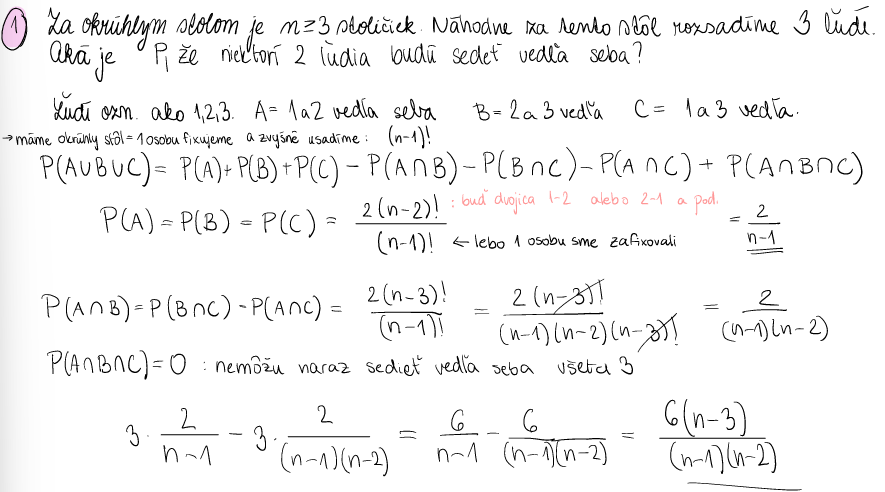 1) Za okrúhlym stolom je n≥3 stoličiek. Náhodne za tento stôl rozsadíme 3 ľudí.
Aká je P, že niektorí 2 ľudia budú sedeť vedľa seba?
Ľudí ozn. ako 1,2,3. A = 1 a 2 vedľa seba B = 2 a 3 vedľa C = 1 a 3 vedľa.
→ máme okrúhly stôl = 1 osobu fixujeme a zvyšné usadíme : (n-1)!
P(A∪B∪C) = P(A) + P(B) + P(C) - P(A∩B) - P(B∩C) - P(A∩C) + P(A∩B∩C)
P(A) = P(B) = P(C) = 2(n-2)! / (n-1)! = 2 / n-1
: buď dvojica 1-2 alebo 2-1 a pod.
← lebo 1 osobu sme zafixovali
P(A∩B) = P(B∩C) - P(A∩C) = 2(n-3)! / (n-1)! = 2(n-3)! / (n-1)(n-2)(n-3)! = 2 / (n-1)(n-2)
P(A∩B∩C) = 0 : nemôžu naraz sedieť vedľa seba všetci 3
3 · 2 / n-1 - 3 · 2 / (n-1)(n-2) = 6 / n-1 - 6 / (n-1)(n-2) = 6(n-3) / (n-1)(n-2)